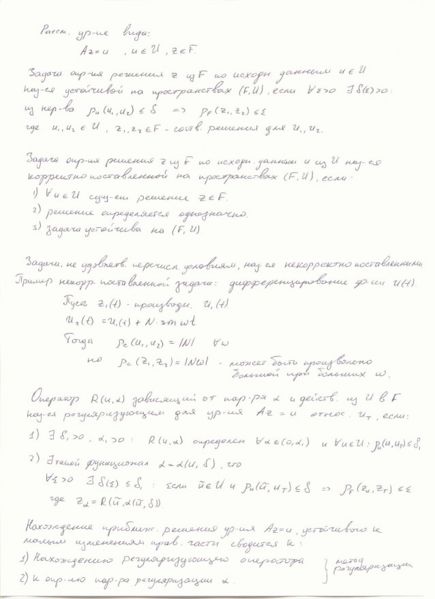 Рассм. ур-ие вида:
Az=u , u∈U , z∈F
Задача опр-ия решения z из F по исходн данным u∈U
наз-ся устойчивой на пространствах (F,U), если ∀ε>0 ∃δ(ε)>0:
из нер-ва ρu(u₁,u₂)≤δ => ρF(z₁,z₂)≤ε
где u₁,u₂∈U , z₁,z₂∈F - соотв. решения для u₁,u₂.
Задача опр-ия решения z из F по исходн данным u из U наз-ся
корректно поставленной на пространствах (F,U), если:
1) ∀u∈U сущ-ет решение z∈F.
2) решение определяется однозначно.
3) задача устойчива на (F,U)
Задачи, не удовлетв. перечисл. условиям, наз-ся некорректно поставленными
Пример некорр. поставленной задачи: дифференцирование ф-ии u(t).
Пусть z₁(t) - производн. u₁(t)
u₂(t)=u₁(t)+N·sin ωt
Тогда ρc(u₁,u₂)=|N| ∀ω
но ρc(z₁,z₂)=|Nω| - может быть произвольно
большой при больших ω.
Оператор R(u,α) зависящий от пар-ра α и действ. из U в F
наз-ся регуляризующим для ур-ия Az=u относ. uT, если:
1) ∃ δ₁>0, α₁>0: R(u,α) определен ∀α∈(0,α₁) и ∀u∈U: ρu(u,uT)≤δ₁
2) ∃ функционал α=α(u,δ), что
∀ε>0 ∃δ(ε)≤δ₁: если ũ∈U и ρu(ũ,uT)≤δ => ρF(zα,zT)≤ε
где zα=R(ũ,α(ũ,δ))
Нахождение приближ. решения ур-ия Az=u, устойчивого к
малым изменениям прав. части сводится к:
1) Нахождению регуляризующего оператора
2) к опр-ию пар-ра регуляризации α.
метод
регуляризации